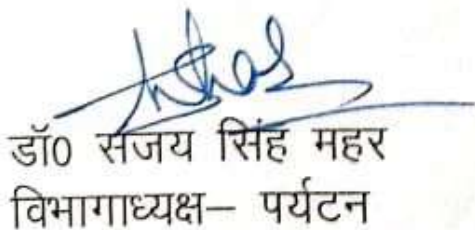 डॉ0 संजय सिंह महर
विभागाध्यक्ष– पर्यटन